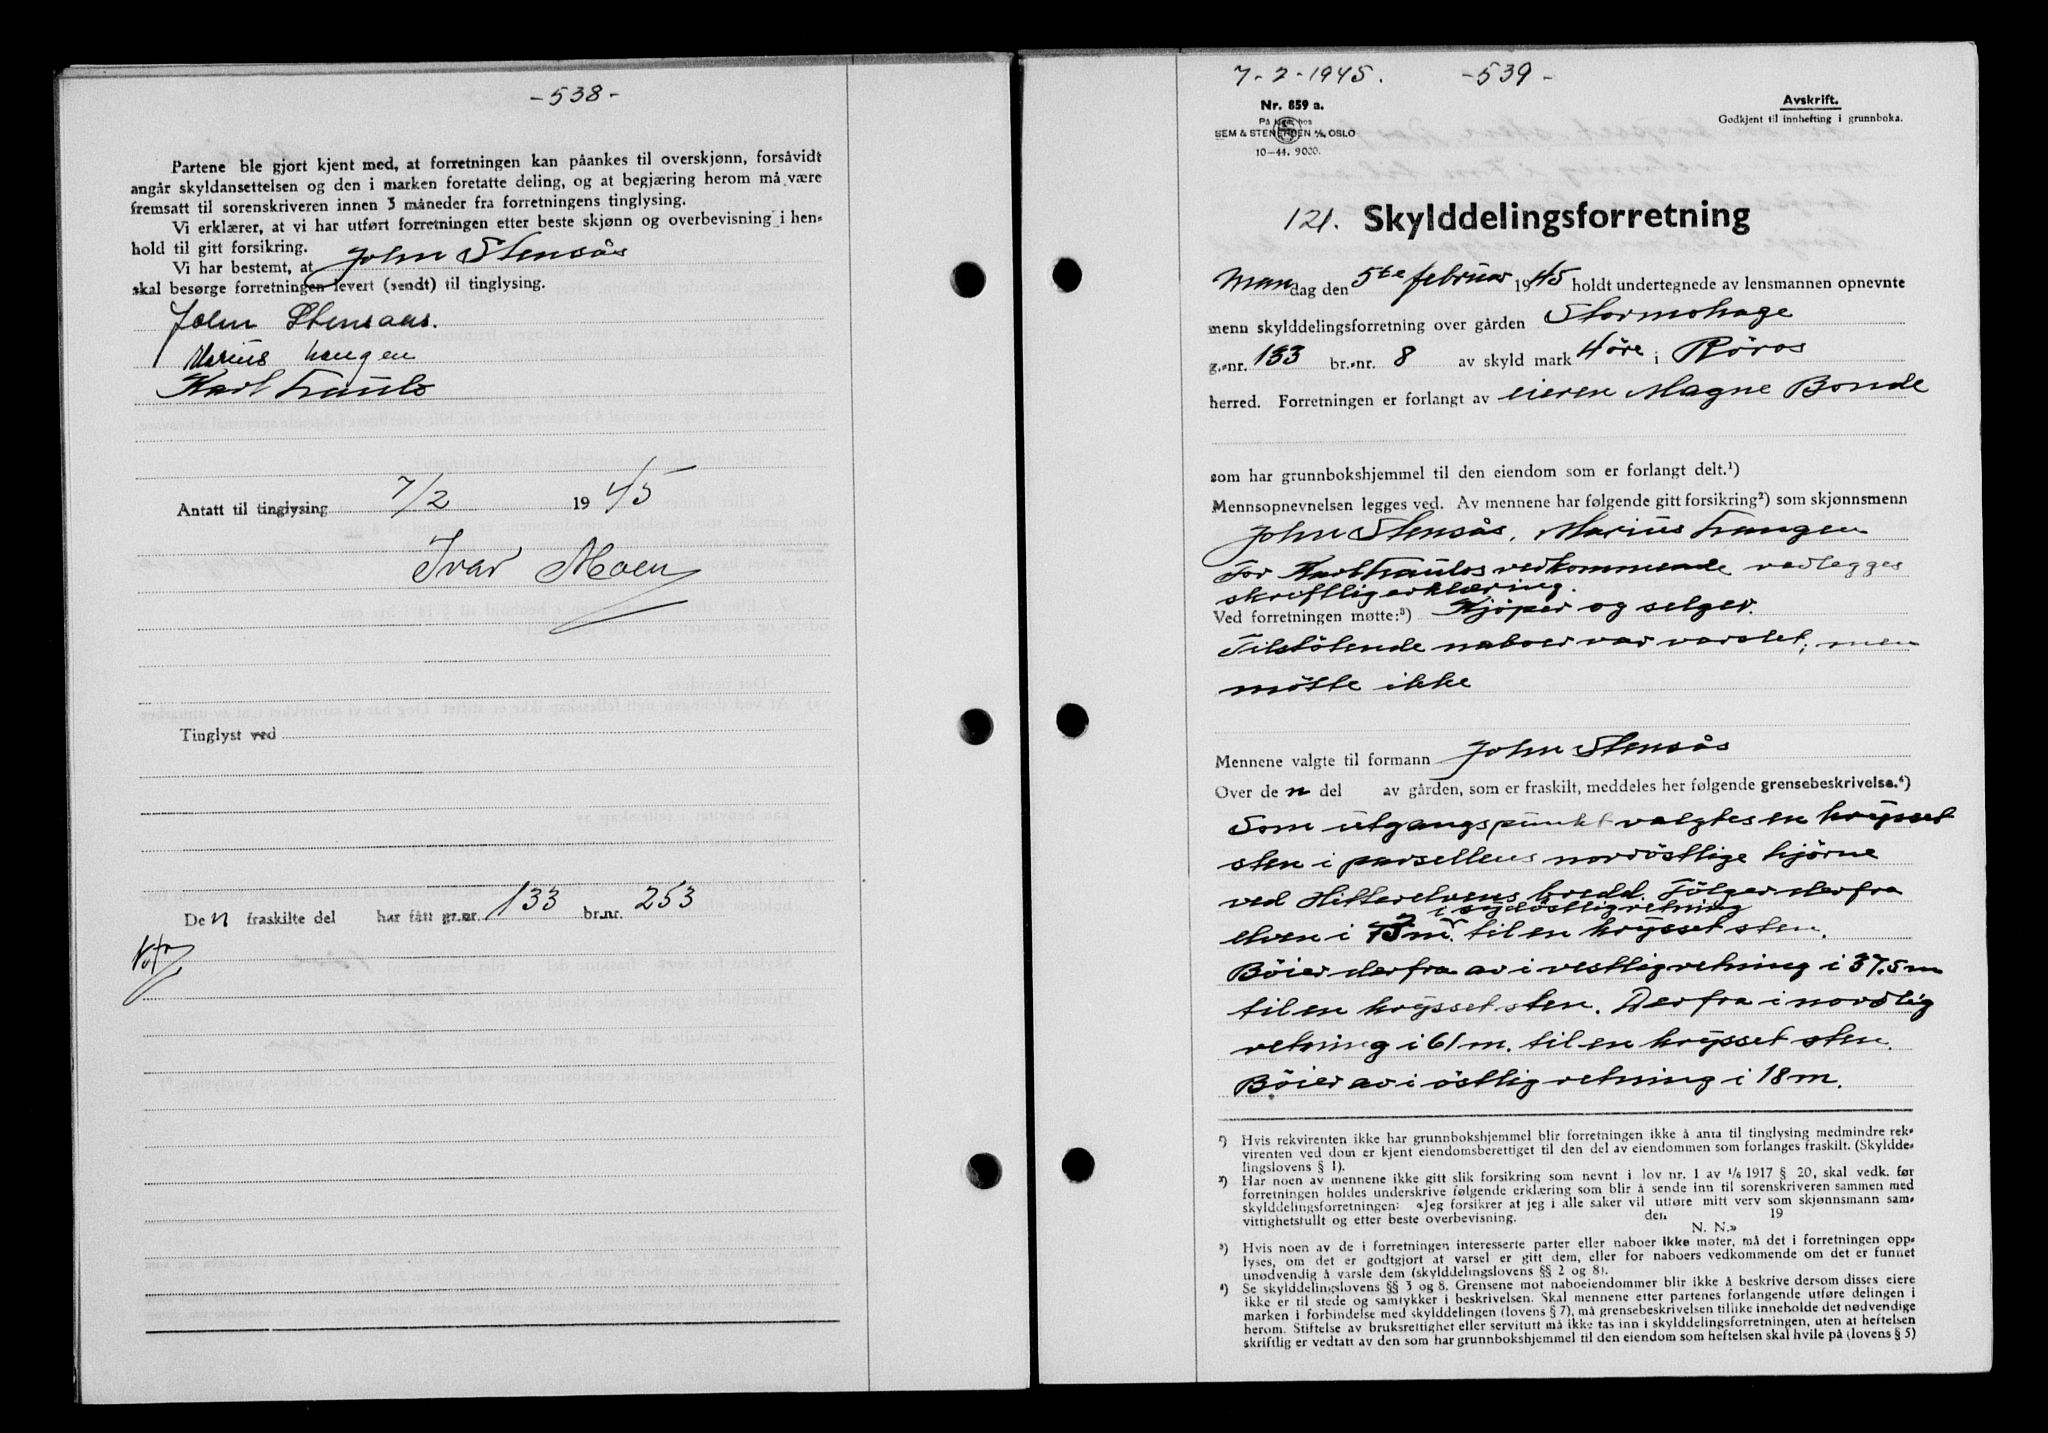 - 538 -
Partene ble gjort kjent med, at forretningen kan påankes til overskjønn, forsåvidt
angår skyldansettelsen og den i marken foretatte deling, og at begjæring herom må være
fremsatt til sorenskriveren innen 3 måneder fra forretningens tinglysing.
Vi erklærer, at vi har utført forretningen etter beste skjønn og overbevisning i hen-
hold til gitt forsikring.
Vi har bestemt, at John Stensås
skal besørge forretningen levert (sendt) til tinglysing.
John Stensaas.
Marius Langen
Karl Trulo
Antatt til tinglysing 7/2 1945
Ivar Moen
Tinglyst ved
Den fraskilte del har fått gr.nr. 133 br.nr. 253
7-2-1945. - 539 -
Nr. 859 a.
På lager hos
SEM & STENERSEN A/S, OSLO
10-44. 9000.
Avskrift.
Godkjent til innhefting i grunnboka.
121. Skylddelingsforretning
Mandag den 5te februar 1945 holdt undertegnede av lensmannen opnevnte
menn skylddelingsforretning over gården Stormohage
g.-nr. 133 br.-nr. 8 av skyld mark 4 øre i Røros
herred. Forretningen er forlangt av eieren Magne Bonde
som har grunnbokshjemmel til den eiendom som er forlangt delt.¹)
Mennsopnevnelsen legges ved. Av mennene har følgende gitt forsikring²) som skjønnsmenn
John Stensås, Marius Langen
For Karl Trulos vedkommende vedlegges
skriftlig erklæring.
Ved forretningen møtte:³) Kjöper og selger.
Tilstötende naboer var varslet, men
mötte ikke
Mennene valgte til formann John Stensås
Over den del av gården, som er fraskilt, meddeles her følgende grensebeskrivelse.⁴)
Som utgangspunkt valgtes en krysset
sten i parsellens nordöstlige hjörne
ved Hitterelvens bredd. Fölger derfra
i sydöstlig retning
elven i 75 m. til en krysset sten.
Böier derfra av i vestlig retning i 37.5 m
til en krysset sten. Derfra i nordlig
retning i 61 m. til en krysset sten.
Böier av i östlig retning i 18 m.
¹) Hvis rekvirenten ikke har grunnbokshjemmel blir forretningen ikke å anta til tinglysing medmindre rek-
virenten ved dom er kjent eiendomsberettiget til den del av eiendommen som forlanges fraskilt. (Skyldde-
lingslovens § 1).
²) Har noen av mennene ikke gitt slik forsikring som nevnt i lov nr. 1 av 1/6 1917 § 20, skal vedk. før
forretningen holdes underskrive følgende erklæring som blir å sende inn til sorenskriveren sammen med
skylddelingsforretningen: «Jeg forsikrer at jeg i alle saker vil utføre mitt verv som skjønnsmann sam-
vittighetsfullt og etter beste overbevisning. den 19
N. N.»
³) Hvis noen av de i forretningen interesserte parter eller naboer ikke møter, må det i forretningen opp-
lyses, om det er godtgjort at varsel er gitt dem, eller for naboers vedkommende om det er funnet
unødvendig å varsle dem (skylddelingslovens §§ 2 og 8).
⁴) Se skylddelingslovens §§ 3 og 8. Grensene mot naboeiendommer blir ikke å beskrive dersom disses eiere
ikke er til stede og samtykker i beskrivelsen. Skal mennene etter partenes forlangende utføre delingen i
marken i forbindelse med skylddelingen (lovens § 7), må grensebeskrivelsen tillike inneholde det nødvendige
herom. Stiftelse av bruksrettighet eller servitutt må ikke tas inn i skylddelingsforretningen, uten at heftelsen
skriftlig er vedtatt av den som har grunnbokshjemmel til den eiendom som heftelsen skal hvile på (lovens § 5)